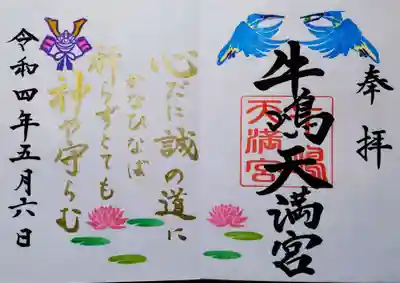 奉拝
牛嶋天満宮
牛嶋
天満宮
心だに誠の道に
かなひなば
祈らずとても
神や守らむ
令和四年五月六日